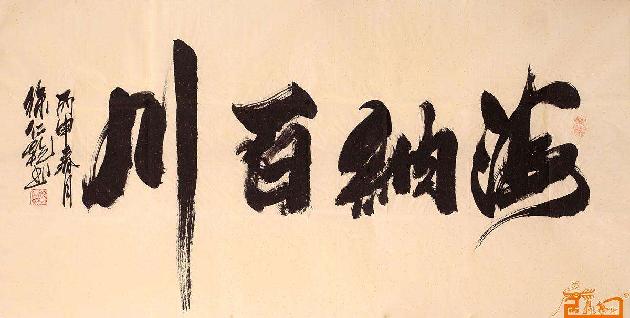 海納百川
丙申春月
徐仁龍书